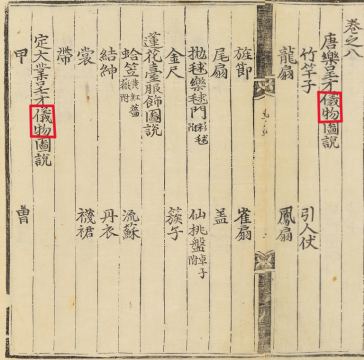 卷之八
唐樂呈才儀物圖說
竹竿子 引人仗
龍扇 鳳扇
旌節 雀扇
尾扇 盖
抛毬樂毬門 附彩毬 仙挑盤 附卓子
金尺 簇子
蓮花臺服飾圖說
蛤笠 流蘇
結紳 丹衣
裳 襪裙
帶
定大業呈才儀物圖說
甲 冑